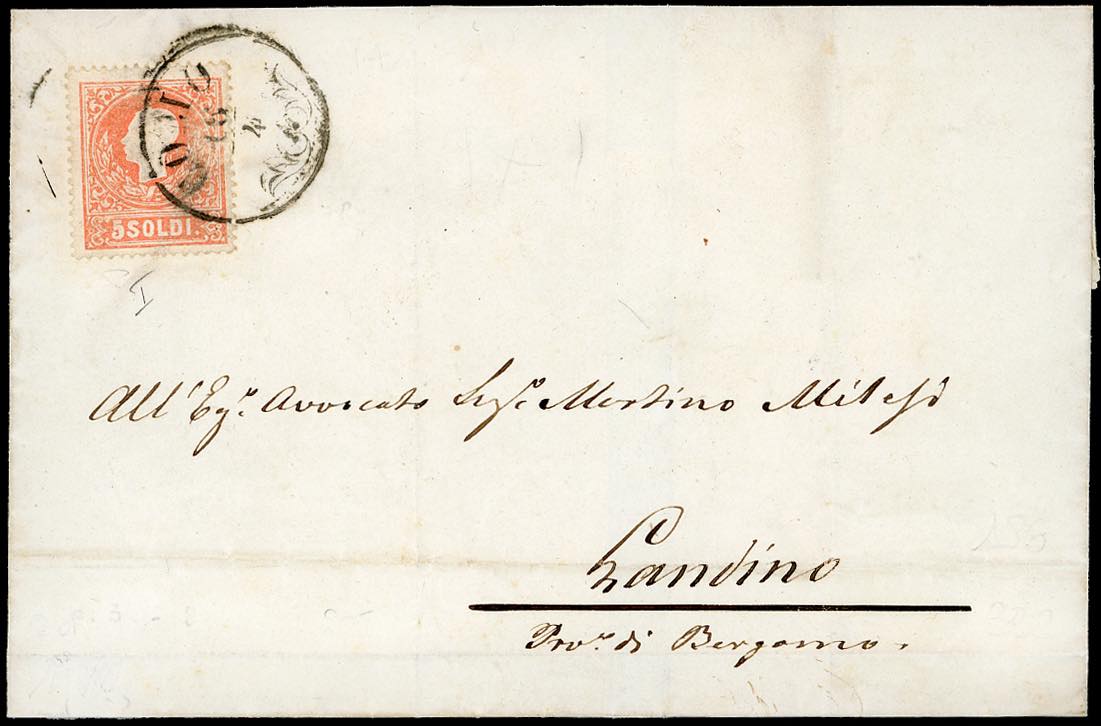 5 SOLDI.
I
All'Egr. Avvocato Sigr Martino Milesi
Gandino
Prov. di Bergamo.